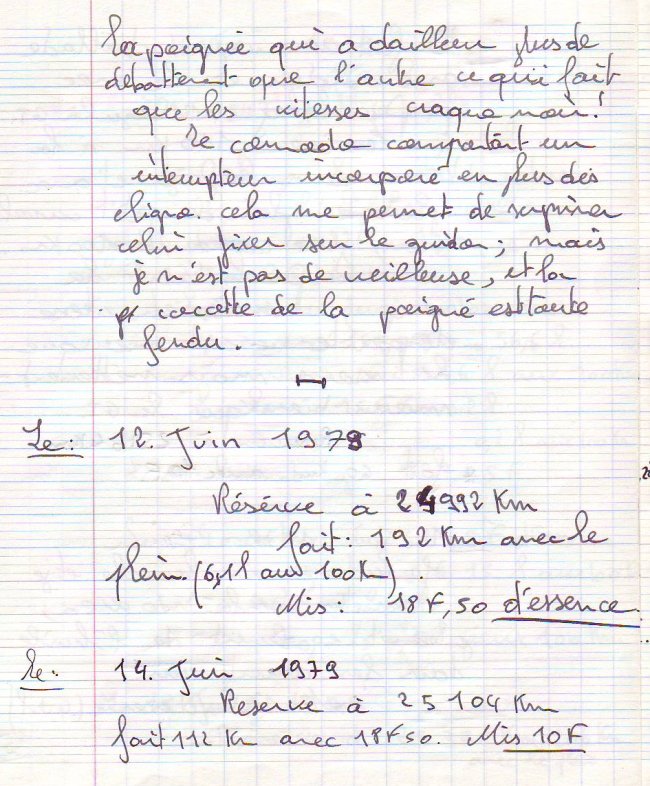 la poignée qui a dailleu plus de
débattement que l'autre ce qui fait
que les vitesses craque noir!
Le comodo comportant un
interupteur incorporé en plus des
cligno. cela me permet de suprimer
celui fixer sur le guidon; mais
je n'est pas de veilleuse, et la
cocotte de la poigné est toute
fendu.
Le: 12. Juin 1979
Réserve à 24992 Km
fait: 192 Km avec le
plein. (6,1l aux 100Km).
Mis: 18F,50 d'essence
le: 14. Juin 1979
Reserve à 25104 Km
fait 112 Km avec 18F50. Mis 10F